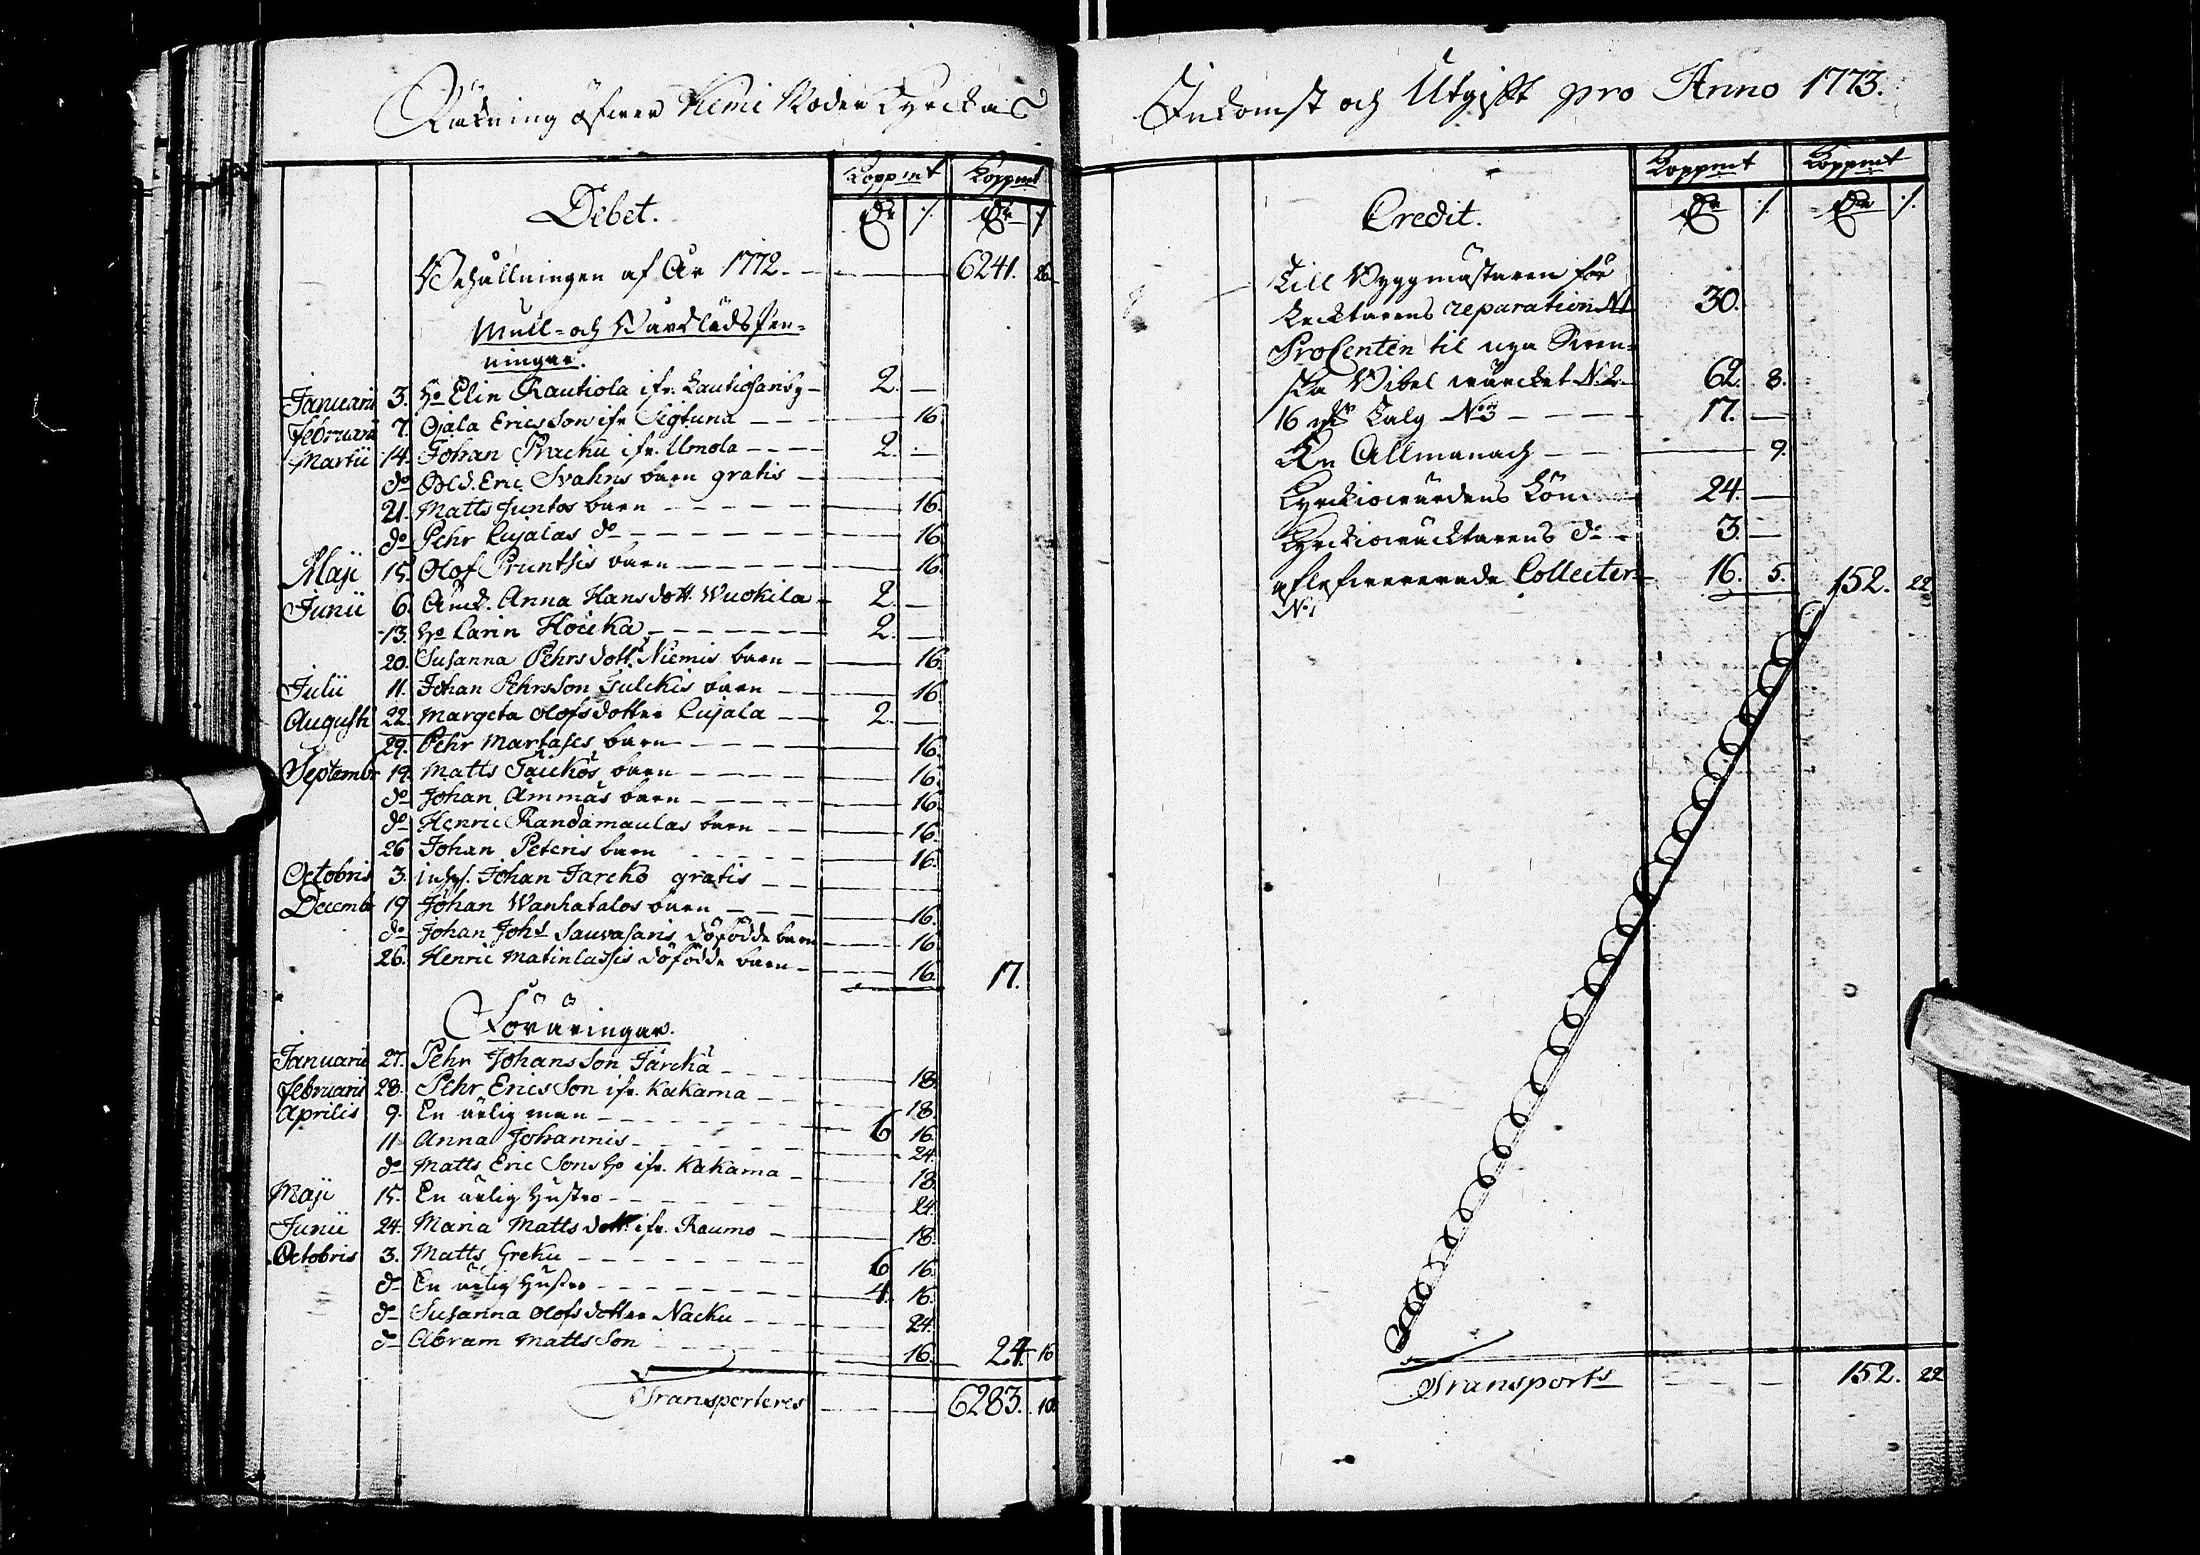 Räkning öfwer Kemi Moder Kyrckas
Debet.
Koppmt Koppmt
Dr ./. Dr ./.
Behållningen af År 1772. 6241. 26
Mull- och Wårdlädspen-
ningar.
Januarii 3. Ho Elin Rautiola ifr. Lautiosari 2. —
Februarii 7. Ojala Ericsson ifr Sigtuna 16.
Martii 14. Johan Pracku ifr. Umola 2. —
do Eric Svahns barn gratis
21. Matts Juntos barn 16.
do Pehr Lujalas do 16.
Maji 15. Olof Pruntsis barn 16.
Junii 6. Anna Hansdott. Wuokila 2. —
13. Ho Carin Hoicka 2. —
20. Susanna Pehrsdott. Niemis barn 16.
Julii 11. Johan Pehrsson Julckis barn 16.
Augusti 22. Margeta Olofsdotter Lujala 2. —
29. Pehr Martases barn 16.
Septembr 19. Matts Taickos barn 16.
do Johan Ammäs barn 16.
do Henric Randamaulas barn 16.
26 Johan Peteris barn 16.
Octobris 3. inhys. Johan Jarcko gratis
Decembr 19 Johan Wanhatalos barn 16.
do Johan Johs Sauvosaris döfödde barn 16.
26. Henric Matinlassis döfödde barn 16. 17.
Föräringar.
Januarii 27. Pehr Johansson Järckä 18.
Februarii 28. Pehr Ericsson ifr. Kakama 18.
Aprilis 9. En ärlig man 6 16.
11. Anna Johannis 24.
do Matts Ericsons Ho ifr. Kakama 18.
Maji 15. En ärlig Hustro 24.
Junii 24. Maria Mattsdott. ifr. Raumo 18.
Octobris 3. Matts Greku 6 16.
do En ärlig Hustro 4. 16.
do Susanna Olofsdotter Nacku 24.
do Abram Mattsson 16. 24. 16
Transporteres 6283. 10
Inkomst och Utgift pro Anno 1773.
Credit.
Koppmt Koppmt
Dr ./. Dr ./.
Till Byggmästaren för
Lecktarens reparation N1 30.
ProCenten til nya Swen-
ska Bibel wärcket N.2 62. 8.
16 Talg No3 17. —
En Allmanach 9.
Kyrckiowärdens Lön 24. —
Kyrckiowäcktarens do 3. —
aflefwererade Collecter 16. 5. 152. 22
No
Transports 152. 22